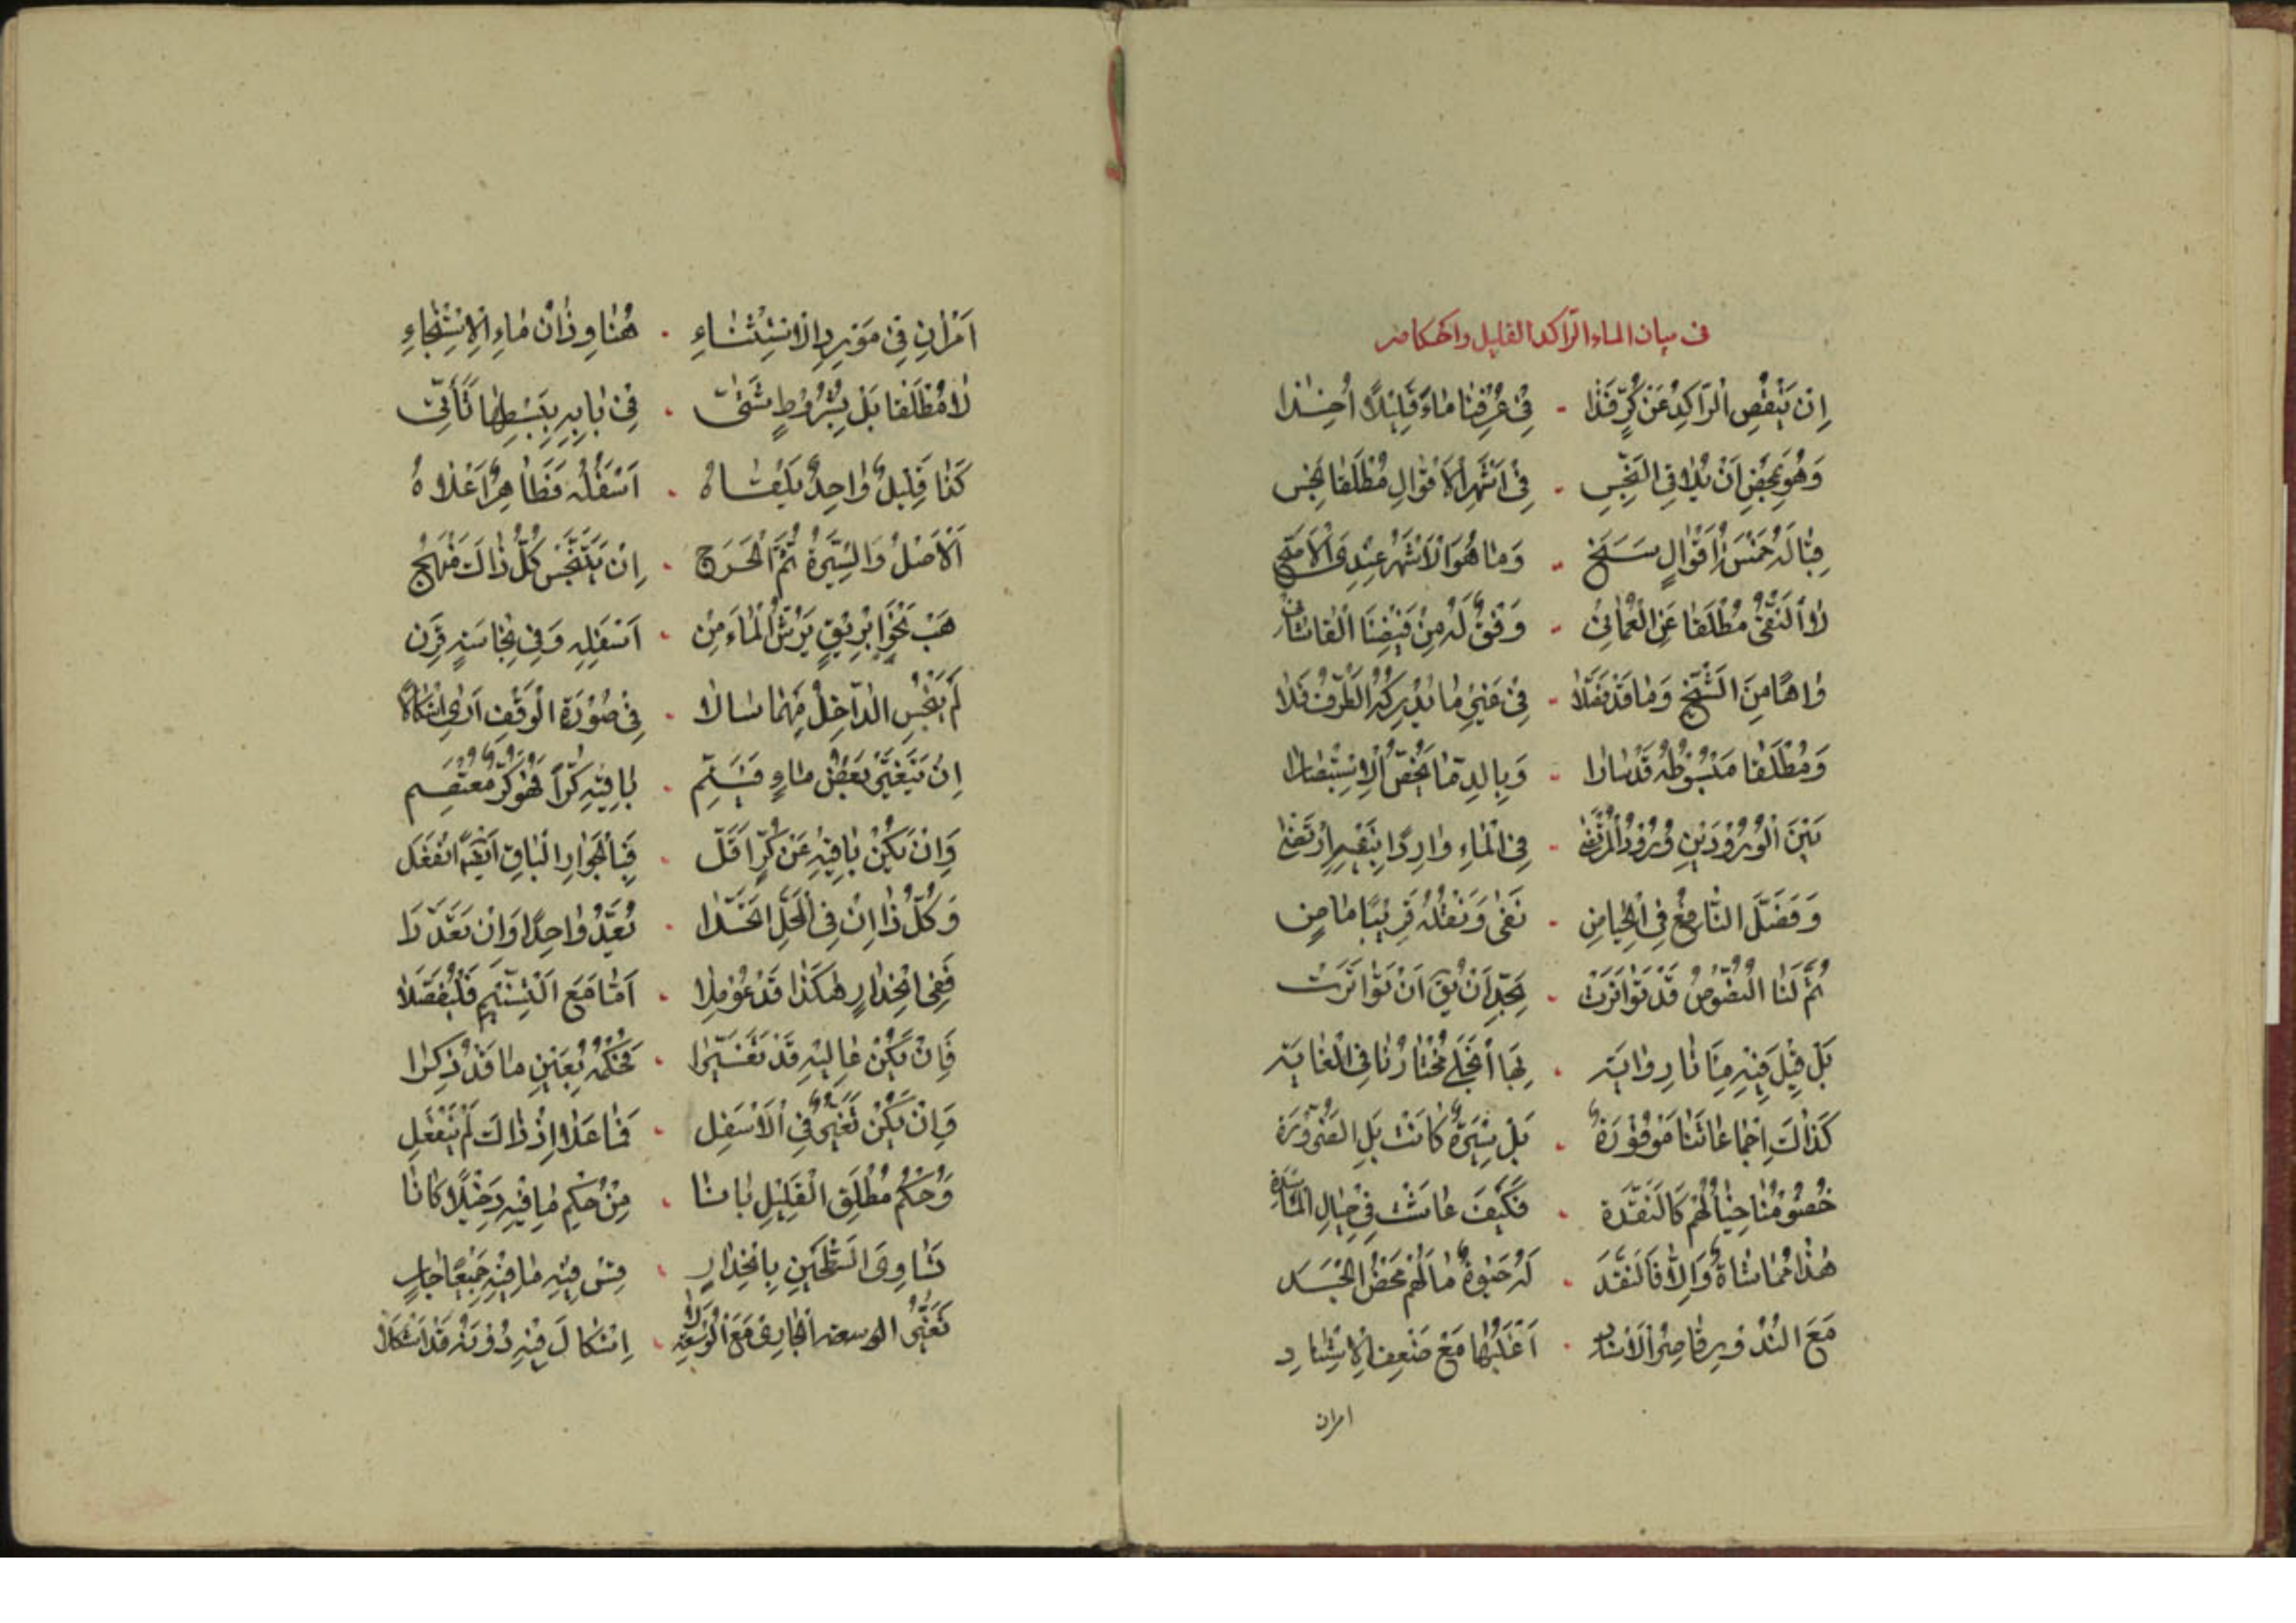 في بيان الماء الراكد القليل واحكامه
اِنْ يَنْقُصِ الرّاكِدُ عَنْ كُرٍّ فَذا - في عُرْفِنا ماءً قَليلًا اُخِذا
وَهُوَ بِمَحْضِ اَنْ يُلاقِي النَّجِسِ - في اَشْهَرِ الْاَقْوالِ مُطْلَقا نَجِس
قِبالَهُ خَمْسَةُ اَقْوالٍ سَنَحَ - وَما هُوَ الْاَشْهَرُ عِنْدِى الْاَصَحّ
لا النَّفْىُ مُطْلَقا عَنِ الْعُمّانِىْ - وَفْقٌ لَهُ مِنْ فَيْضِنَا الْقاشانى
واهًا مِنَ الشَّيْخِ وَما قَدْ فَصَّلا - في غَيْرِ ما يُدْرِكُهُ الطَّرْفُ فَلا
وَمُطْلَقا مَبْسُوطُهُ قَدْ سارا - وَبِالدِّما يَخُصُّ الْاِسْتِبْصارا
بَيْنَ الْوُرُودَيْنِ وُرُودُ الْمُرْتَضى - فِى الْماءِ وارِدًا بِنَفْىٍ ارْتَضى
وَفَصَّلَ التّاسِعُ فِى الْحِيامِنِ - نَفى وَنَقْلُهُ قَريبًا ما مِن
ثُمَّ لَنَا النُّصُوصُ قَدْ تَواتَرَتْ - بِحَدِّ اَنْ يُقَ اَنْ تَواتَرَت
بَلْ قيلَ فيهِ مِنَّا روايَة - بِها انْجَلى مُخْتارُنا فِى الْغايَة
كَذاكَ اِجْماعاتُنا مَوْفُوْرَةٌ - بَلْ سيرَةٌ كانَتْ بَلِ الضَّرُورَة
خُصُومُنا حِبالُهُمْ كَالنَّقَدَة - فَكَيْفَ عاشَتْ في حِبالِ
هذا مُماشاةٌ وَاِلّا فَالنَّقَدَ - لَهُ حَيوةٌ ما لَهُمْ مَحْضُ الْجَسَد
مَعَ النُّدُورِ قاصِرُ الْاَسْنادِ - اَغْلَبُها مَعْ ضَعْفِ الْاِسْنادِ
امران
اَمْرانِ في مَوْرِدِ اِنْ اسْتِثْناءِ - هُنا وِذانْ ماءِ الْاِسْتِنْجاءِ
لا مُطْلَقا بَلْ بِشُرُوطٍ شَتّى - في بابِهِ بِبَسْطِها تَأَتّى
كَذا قَليلٌ واحِدٌ يَلْقاهُ - اَسْفَلُهُ فَطاهِرٌ اَعْلاهُ
اَلْاَصْلُ وَالسّيرَةُ ثُمَّ الْحَرَجُ - اِنْ يَتَنَجَّسْ كُلُّ ذاكَ مَنْهَج
هَبْ نَحْوَ اِبْريقٍ يَرُشُّ الْماءَ مِنْ - اَسْفَلِهِ وَفي نِجاسَةٍ قُرِن
لَمْ يَنْجُسِ الدّاخِلُ مَهْما سالا - في صُوْرَةِ الْوَقْفِ اَرى اِشْكالًا
اِنْ يَتَغَيَّرْ بَعْضُ ماءٍ فَيَتِمِ - باقيهِ كُرّاً فَهُوَ كُرٌّ مُعْتَصِم
وَاِنْ يَكُنْ باقيهِ عَنْ كُرٍّ اَقَلّ - فَبِالْجَوارِ الْباقِ اَيْضًا انْفَعَل
وَكُلُّ ذا اِنْ فِى الْمَحَلِّ اتَّحَدا - يُعَدُّ واحِدًا وَاِنْ تَعَدَّدا
فَفِى انْحِدارٍ هكَذا قَدْ عُوْمِلا - اَمّا مَعَ التَّسْنيمِ فَلْيُفَصَّلا
فَاِنْ يَكُنْ عاليهِ قَدْ تَغَيَّرا - فَحُكْمُهُ بِعَيْنِ ما قَدْ ذُكِرا
وَاِنْ يَكُنْ تَغَيُّرٌ فِى الْاَسْفَلِ - فَما عَلا اِذْ ذاكَ لَمْ يَنْفَعِل
وَحُكْمُ مُطْلَقِ الْقَليلِ بانا - مِنْ حُكْمِ ما فيهِ دَخيلًا كانا
تَساوِىَ السَّطْحَيْنِ بِانْحِدارٍ - قِسْ فيهِ ما فيهِ جَميعًا جارٍ
تَغَيُّرُ الوسعه الْجارى مَعَ الْوَسْعَةِ لا - اِشْكالَ فيهِ دُوْنَهُ قَدْ اَشْكَلا